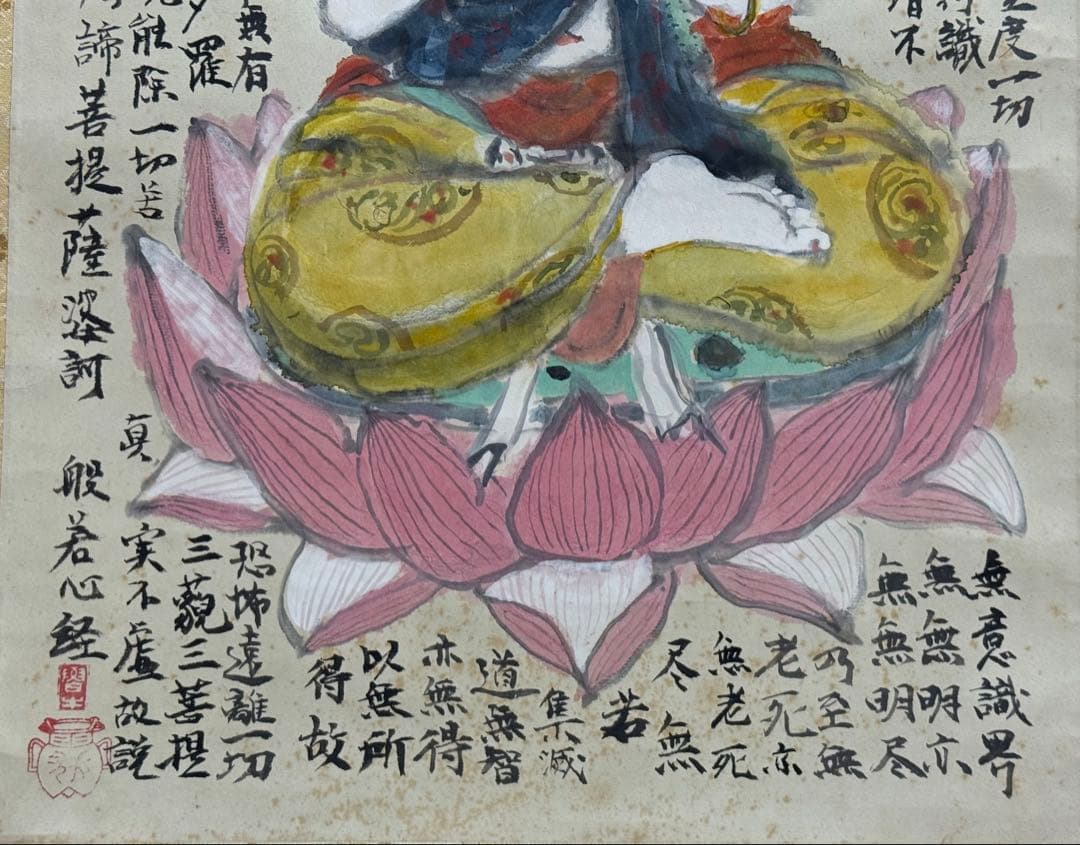 度一切
識
不
無意識界
無無明亦
無無明尽
乃至無
老死亦
無老死
尽無
若
集滅
道無智
亦無得
以無所
得故
無有
恐怖遠離一切
羅
三藐三菩提
能除一切苦
真実不虚故説
諦菩提薩婆訶
般若心経